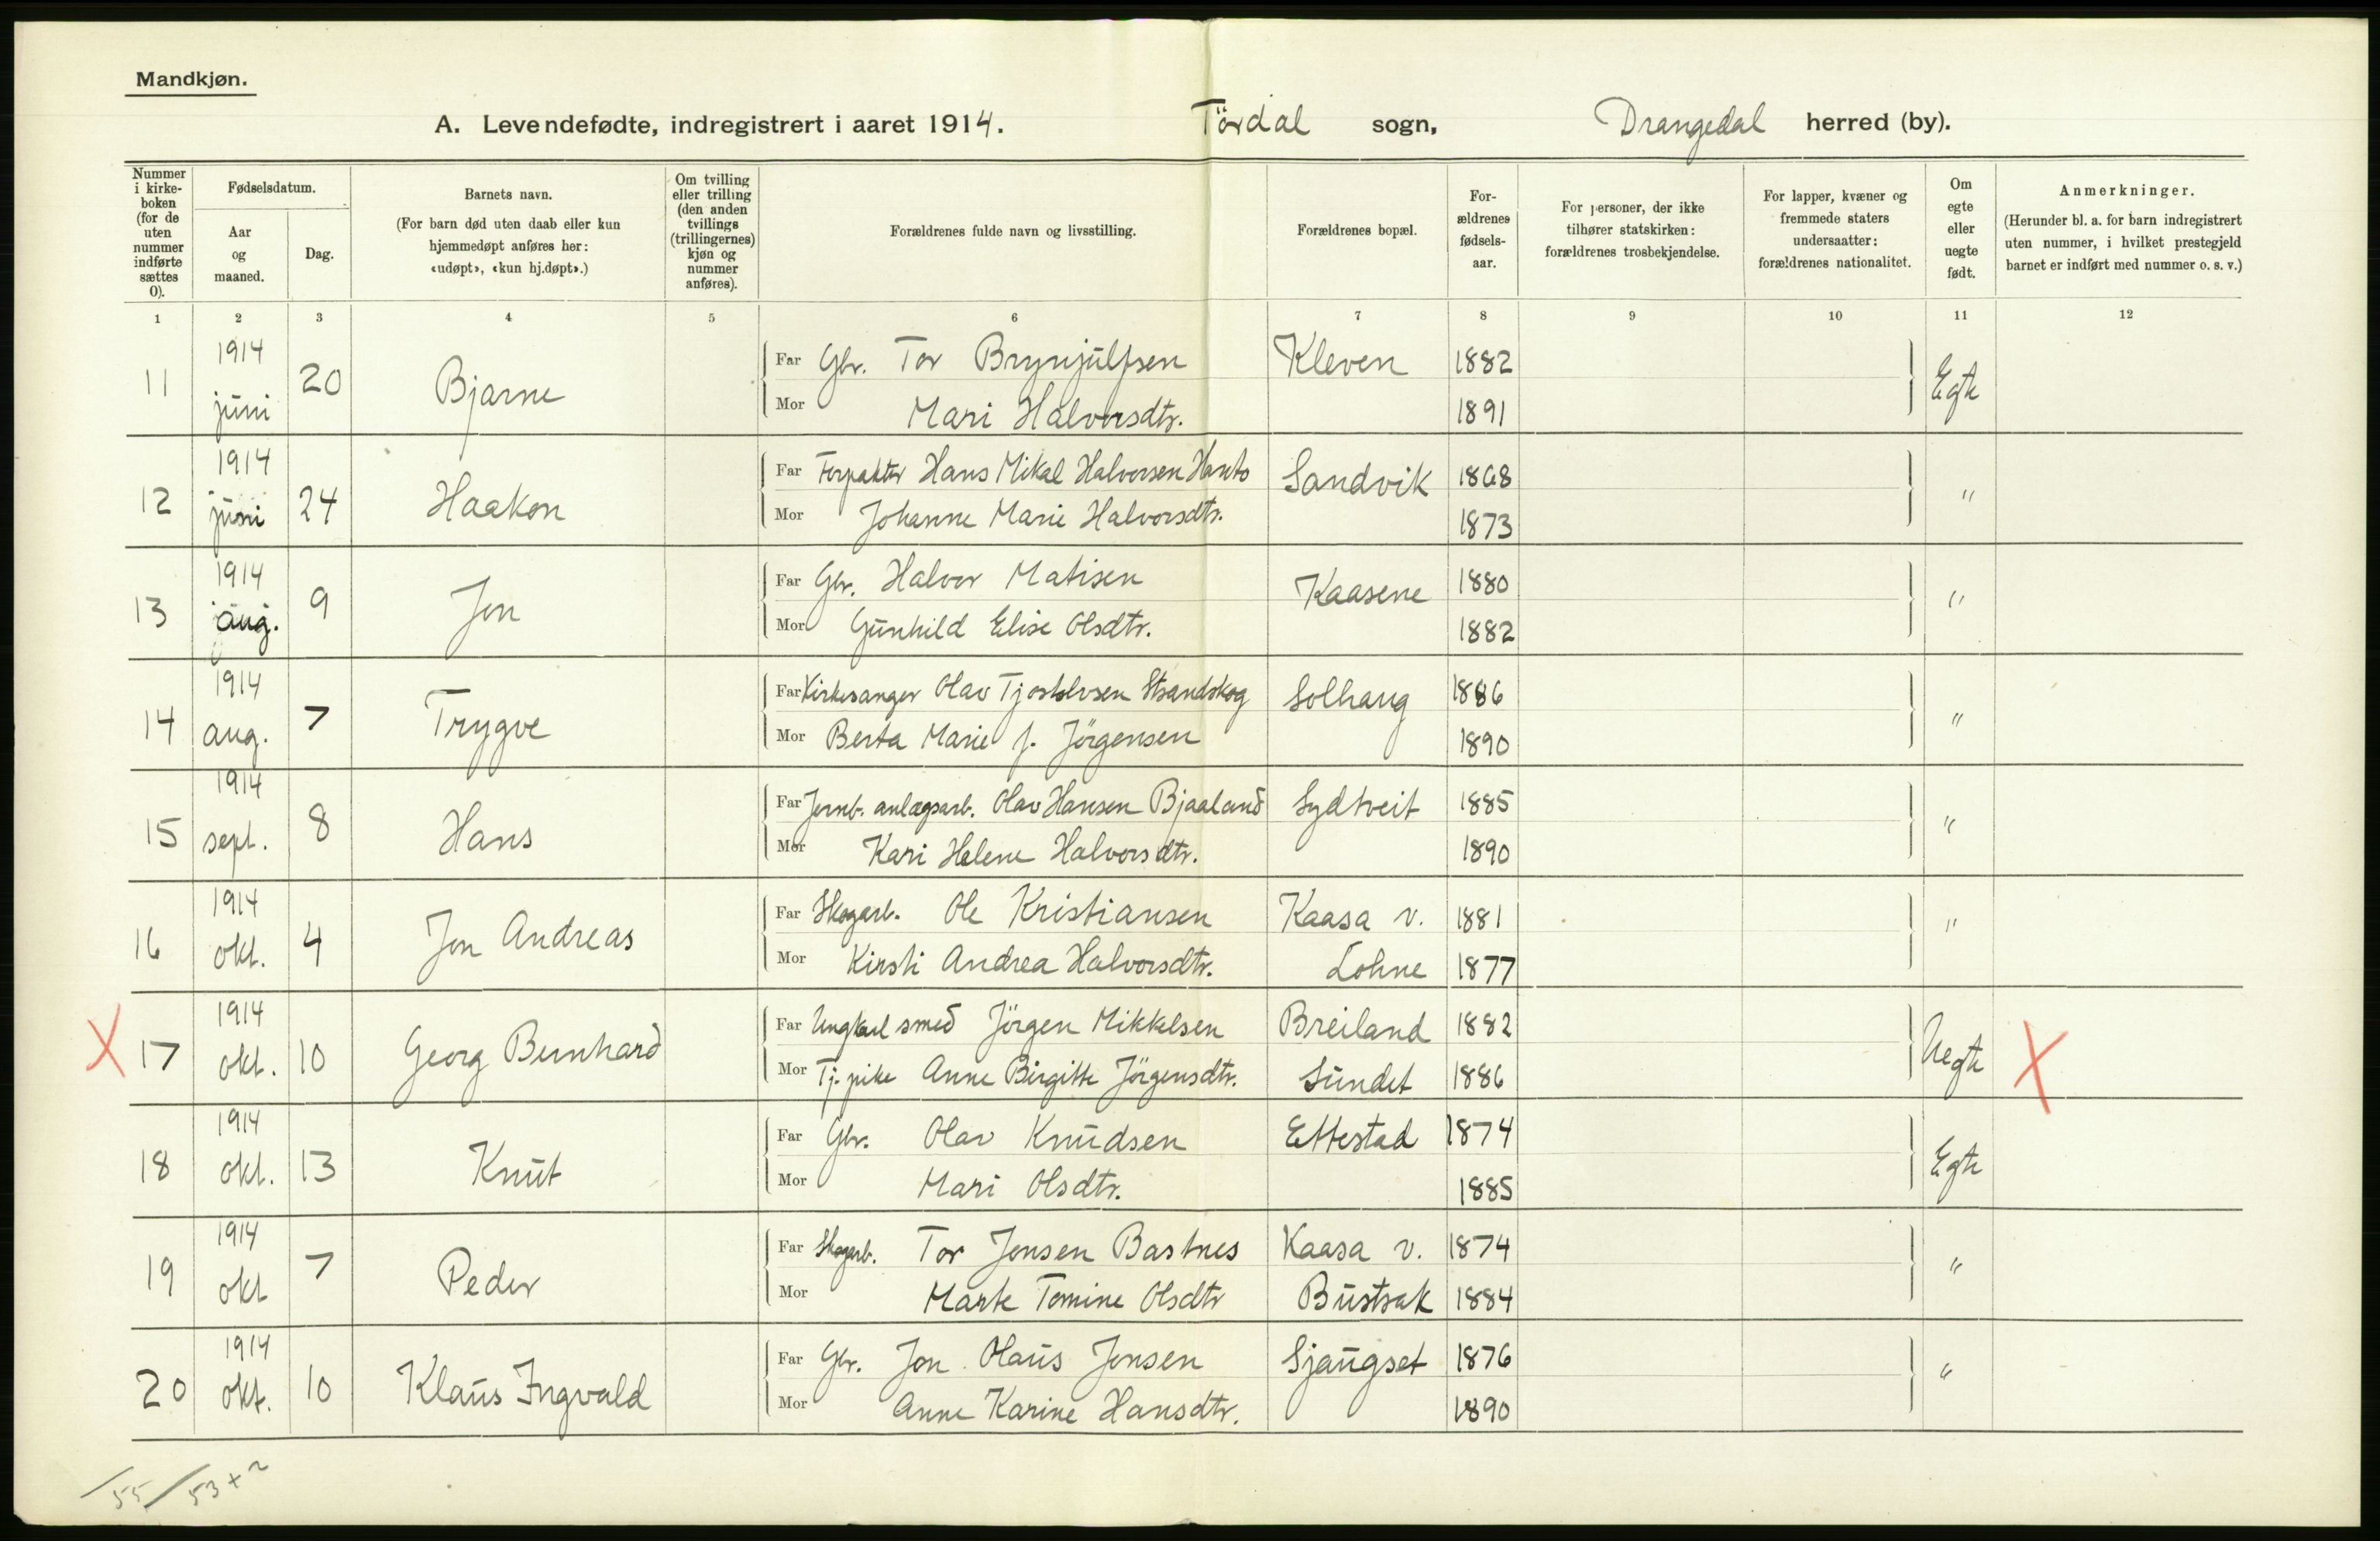 Mandkjøn.
A. Levendefødte, indregistrert i aaret 1914. Tördal sogn, Drangedal herred (by).
Nummer i kirke-boken (for de uten nummer indførte sættes 0).
Fødselsdatum.
Aar og maaned.
Dag.
Barnets navn.
(For barn død uten daab eller kun hjemmedøpt anføres her: «udøpt», «kun hj.døpt».)
Om tvilling eller trilling (den anden tvillings (trillingernes) kjøn og nummer anføres).
Forældrenes fulde navn og livsstilling.
Forældrenes bopæl.
For-ældrenes fødsels-aar.
For personer, der ikke tilhører statskirken: forældrenes trosbekjendelse.
For lapper, kvæner og fremmede staters undersaatter: forældrenes nationalitet.
Om egte eller uegte født.
Anmerkninger.
(Herunder bl. a. for barn indregistrert uten nummer, i hvilket prestegjeld barnet er indført med nummer o. s. v.)
1 2 3 4 5 6 7 8 9 10 11 12
11 1914 juni 20 Bjarne Far Gbr. Tor Brynjulfsen Kleven 1882 Egte
Mor Mari Halvorsdtr. 1891
12 1914 juni 24 Haakon Far Forpakter Hans Mikal Halvorsen Hanto Sandvik 1868 "
Mor Johanne Marie Halvorsdtr. 1873
13 1914 aug. 9 Jon Far Gbr. Halvor Matisen Kaasene 1880 "
Mor Gunhild Elise Olsdtr. 1882
14 1914 aug. 7 Trygve Far Kirkesanger Olav Tjostolvsen Strandskog Solhaug 1886 "
Mor Berta Marie f. Jörgensen 1890
15 1914 sept. 8 Hans Far Jernb. anlægsarb. Olav Hansen Bjaaland Sydtveit 1885 "
Mor Kari Helene Halvorsdtr. 1890
16 1914 okt. 4 Jon Andreas Far Skogarb. Ole Kristiansen Kaasa v. 1881 "
Mor Kirsti Andrea Halvorsdtr. Lohne 1877
X 17 1914 okt. 10 Georg Bernhard Far Ungkarl smed Jörgen Mikkelsen Breiland 1882 Uegte X
Mor Tj. pike Anne Birgitte Jörgensdtr. Sundet 1886
18 1914 okt. 13 Knut Far Gbr. Olav Knudsen Ettestad 1874 Egte
Mor Mari Olsdtr. 1885
19 1914 okt 7 Peder Far Skogarb. Tor Jensen Bastnes Kaasa v. 1874 "
Mor Marte Tomine Olsdtr Bustrak 1884
20 1914 okt. 10 Klaus Ingvald Far Gbr. Jon Olaus Jensen Sjaugset 1876 "
Mor Anne Karine Hansdtr. 1890
/55/53+2